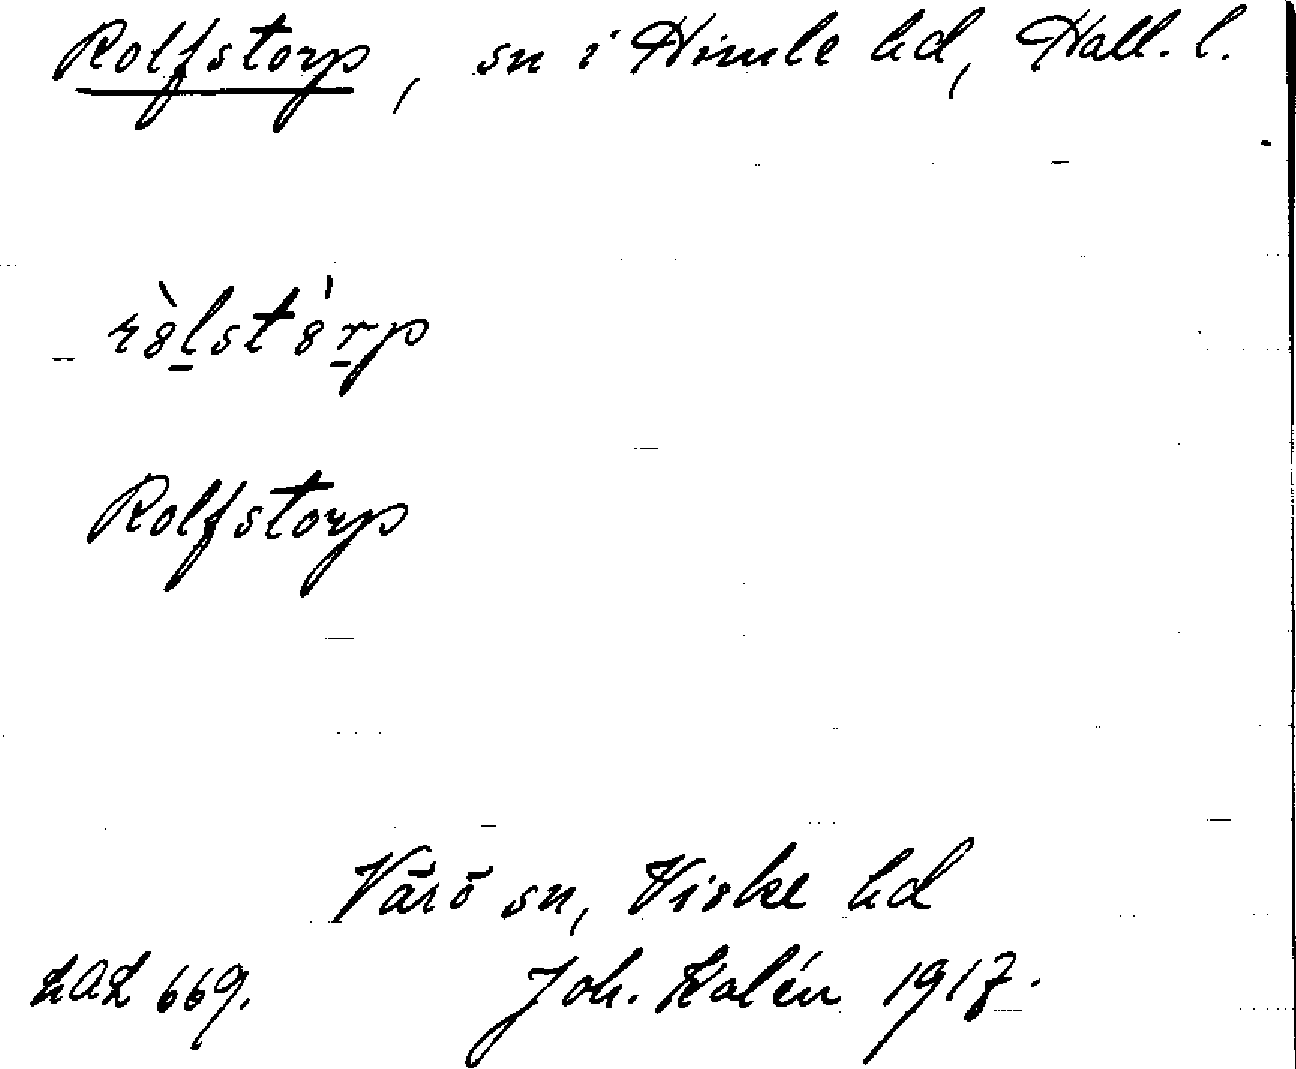 Rolfstorp, sn i Himle hd, Hall. l.
Rolfstorp
Värö sn, Viske hd
LAL 669. Joh. Kalén 1917.